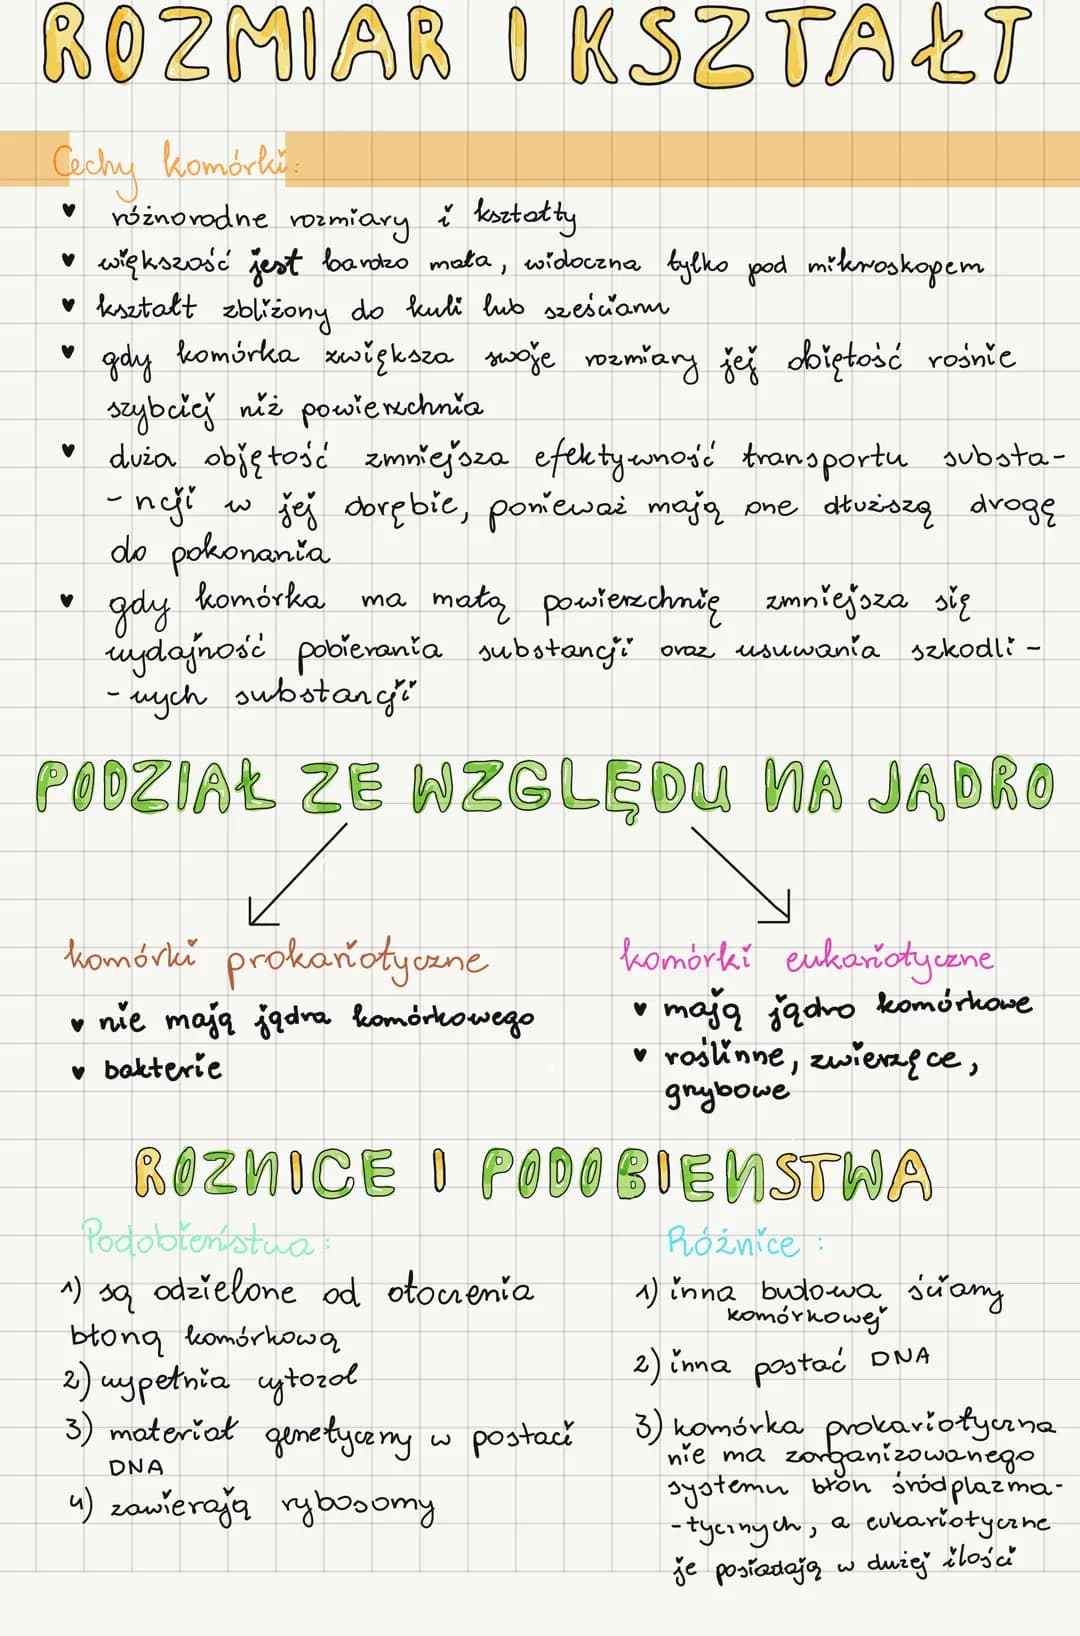 ROZMIAR I KSZTAŁT
Cechy komórki:
♥ różnorodne rozmiary i kształty
♥ większość jest bardzo mała, widoczna tylko pod mikroskopem
♥ kształt zbliżony do kuli lub sześcianu
♥ gdy komórka zwiększa swoje rozmiary jej obiętość rośnie
szybciej niż powierzchnia
♥ duża objętość zmniejsza efektywność transportu substa-
-ncji w jej obrębie, ponieważ mają one dłuższą drogę
do pokonania
♥ gdy komórka ma małą powierzchnię zmniejsza się
wydajność pobierania substancji oraz usuwania szkodli-
-wych substancji
PODZIAŁ ZE WZGLĘDU NA JĄDRO
komórki prokariotyczne
♥ nie mają jądra komórkowego
♥ bakterie
komórki eukariotyczne
♥ mają jądro komórkowe
♥ roślinne, zwierzęce,
grzybowe
ROZNICE I PODOBIENSTWA
Podobieństwa:
1) są odzielone od otoczenia
błoną komórkową
2) wypełnia cytozol
3) materiał genetyczny w postaci
DNA
4) zawierają rybosomy
Różnice:
1) inna budowa ściany
komórkowej
2) inna postać DNA
3) komórka prokariotyczna
nie ma zorganizowanego
systemu błon śródplazma-
-tycznych, a eukariotyczne
je posiadają w dużej ilości